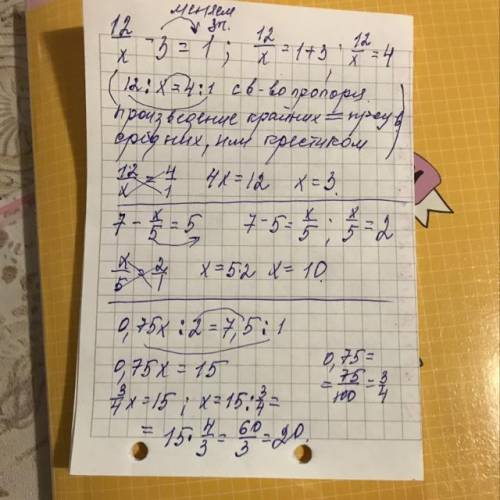 меняем
зн.
12/x - 3 = 1 ; 12/x = 1+3 ; 12/x = 4
(12 : x = 4 : 1 св-во пропорц.
произведение крайних = произв
средних, или крестиком)
12/x = 4/1 4x = 12 x = 3.
7 - x/5 = 5 7 - 5 = x/5 ; x/5 = 2
x/5 = 2/1 x = 5·2 x = 10.
0,75x : 2 = 7,5 : 1
0,75x = 15
0,75 =
= 75/100 = 3/4
3/4 x = 15 ; x = 15 : 3/4 =
= 15 · 4/3 = 60/3 = 20.